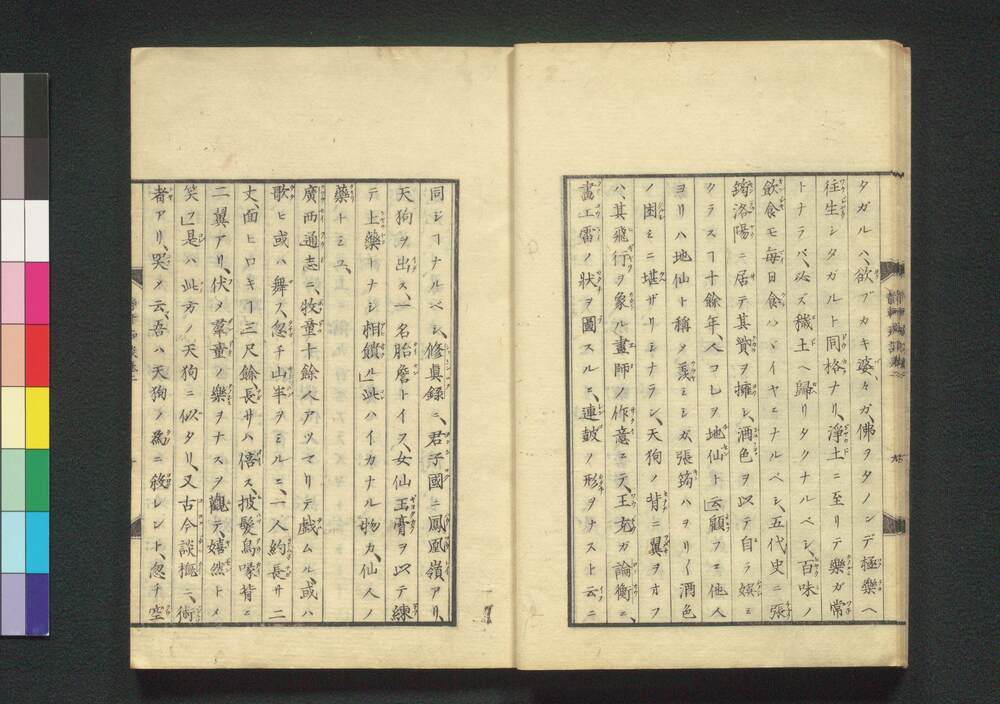 タガルハ、欲ブカキ婆々ガ、佛ヲタノンデ極樂ヘ
往生シタガルト同格ナリ、淨土ニ至リテ樂ガ常
トナラバ、必ズ穢土ヘ歸リタクナルベシ、百味ノ
飮食モ毎日食ハヾイヤニナルベシ、五代史ニ張
筠洛陽ニ居テ其貲ヲ擁シ、酒色ヲ以テ自ラ娯ミ
クラスヿ十餘年、人コレヲ地仙ト云、顧フニ他人
ヨリハ地仙ト稱シ羨ミシガ、張筠ハヲリ〱酒色
ノ困ミニ堪ザリシナラン、天狗ノ背ニ翼ヲオフ
ハ、其飛行ヲ象ル畫師ノ作意ニテ、王充ガ論衡ニ、
畫工雷ノ状ヲ圖スルニ、連鼓ノ形ヲナスト云ニ
同ジヿナルベシ、修眞録ニ、君子國ニ鳳凰嶺アリ、
天狗ヲ出ス、一名胎詹トイヘ、女仙玉膏ヲ以テ練
テ上藥トナシ相饋ル」此ハイカナル物カ、仙人ノ
藥トミユ、
廣西通志ニ、牧童十餘人アツマリテ戯ムル、或ハ
歌ヒ或ハ舞ス、忽チ山半ヲミルニ、一人約長サ二
丈、面ヒロキヿ三尺餘、長サハ倍ス、披髮鳥喙背ニ
二翼アリ、伏メ羣童ノ樂ヲナスヲ觀テ、嬉然トメ
笑フ」是ハ此方ノ天狗ニ似タリ、又古今談概ニ、術
者アリ、哭メ云、吾ハ天狗ノ爲ニ殺レント、忽チ空